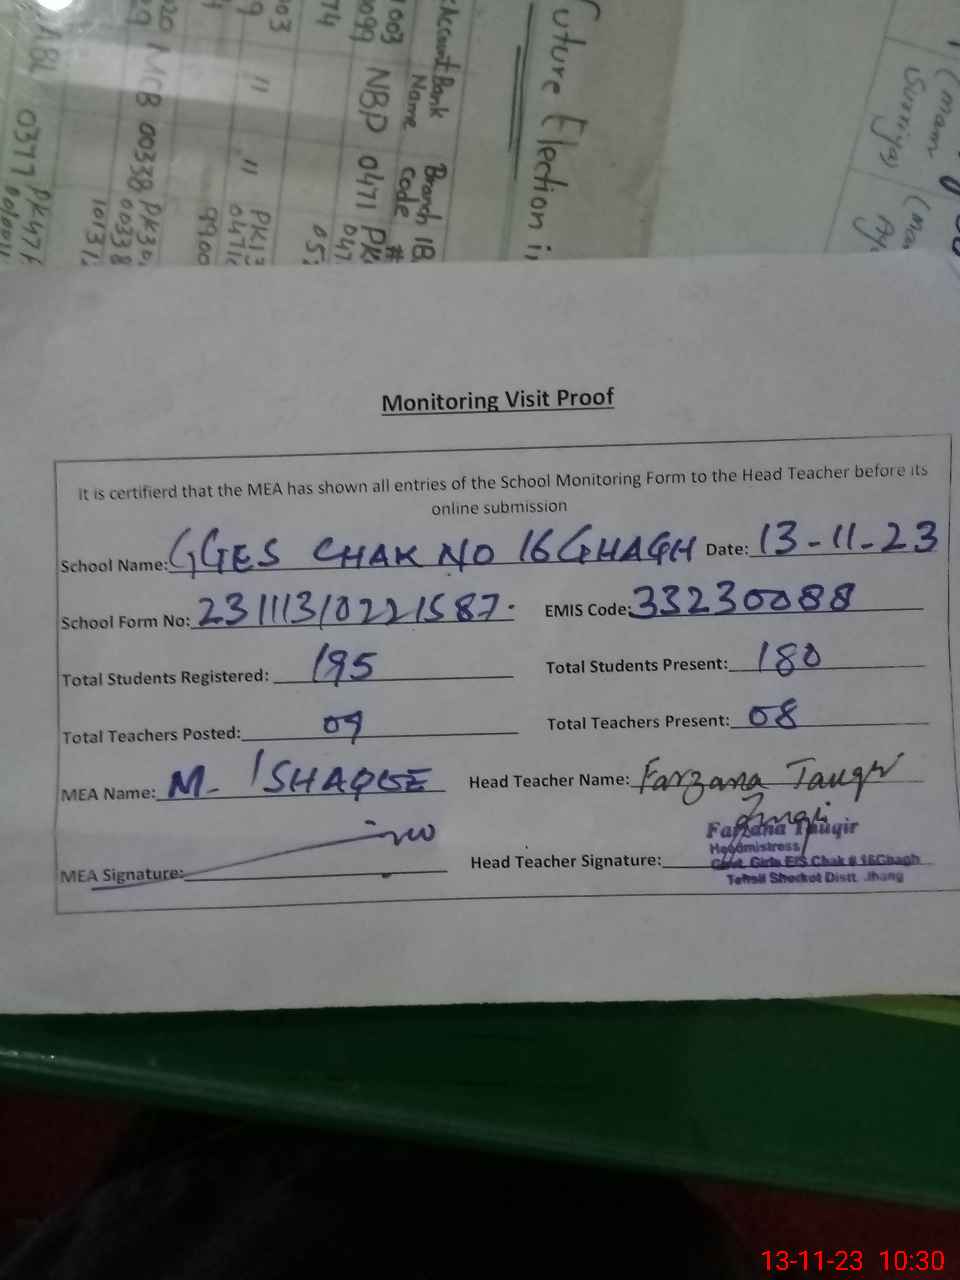 Future Election in
Account Bank Branch IB
Name code #
003 NBP 0471 PK
0099 047
74 05
003
9 " " PK13
0471
9900
MCB 0033B PK30
0033B
10131
ABL 0377 PK47
(mam (ma
Monitoring Visit Proof
It is certifierd that the MEA has shown all entries of the School Monitoring Form to the Head Teacher before its
online submission
School Name: GGES CHAK NO 16 GHAGH Date: 13-11-23
School Form No: 231113/0221587. EMIS Code: 33230088
Total Students Registered: 195 Total Students Present: 180
Total Teachers Posted: 09 Total Teachers Present: 08
MEA Name: M. ISHAQUE Head Teacher Name: Farzana Tauqir
Farzana Tauqir
Headmistress
MEA Signature: Head Teacher Signature: Govt. Girls E/S Chak # 16Ghagh
Tehsil Shorkot Distt. Jhang
13-11-23 10:30